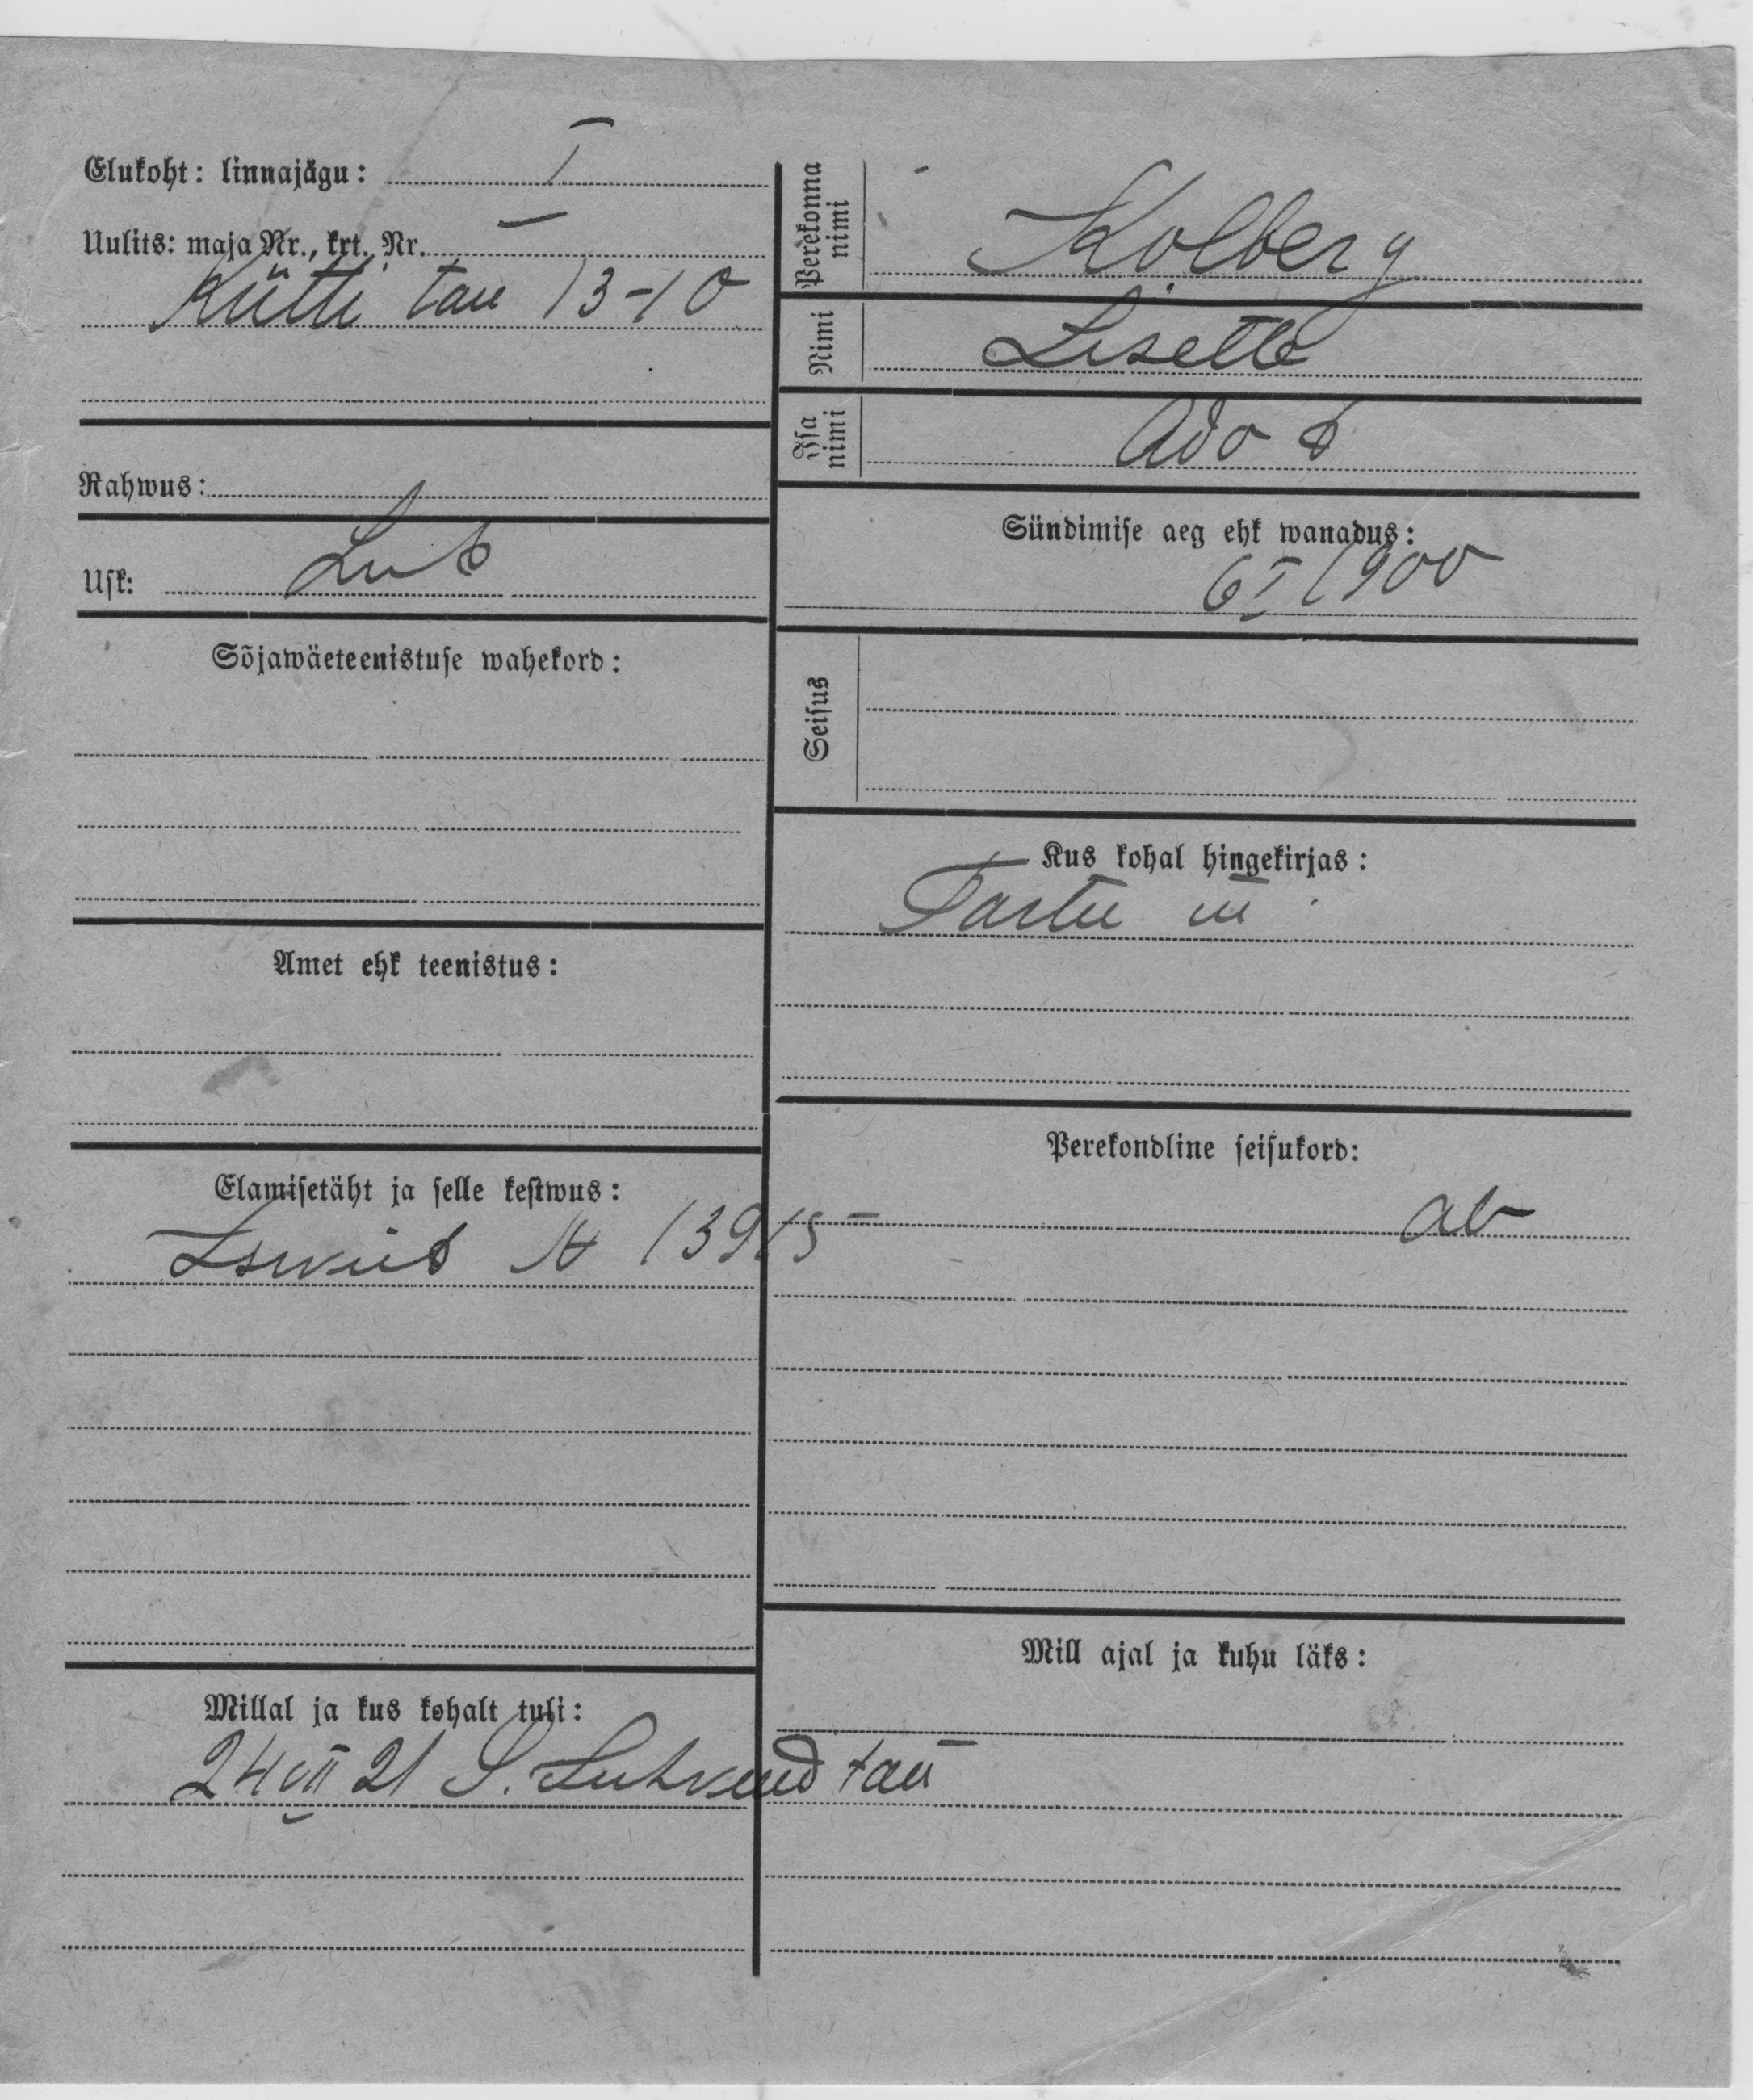 Elukoht: linnajägu: I
Uulits: maja Nr., krt. Nr.
Kütti tän 13-10
Rahwus:
Usk: Lut
Sõjawäeteenistuse wahekord:
Amet ehk teenistus:
Elamisetäht ja selle kestwus:
№ 13915
Millal ja kus kohalt tuli:
24 VII 21 S. tän
Perekonna nimi
Kolberg
Nimi
Lisette
Isa nimi
Ado t
Sündimise aeg ehk wanadus:
6 I 1900
Seisus
Kus kohal hingekirjas:
Tartu III
Perekondline seisukord:
ab
Mill ajal ja kuhu läks: